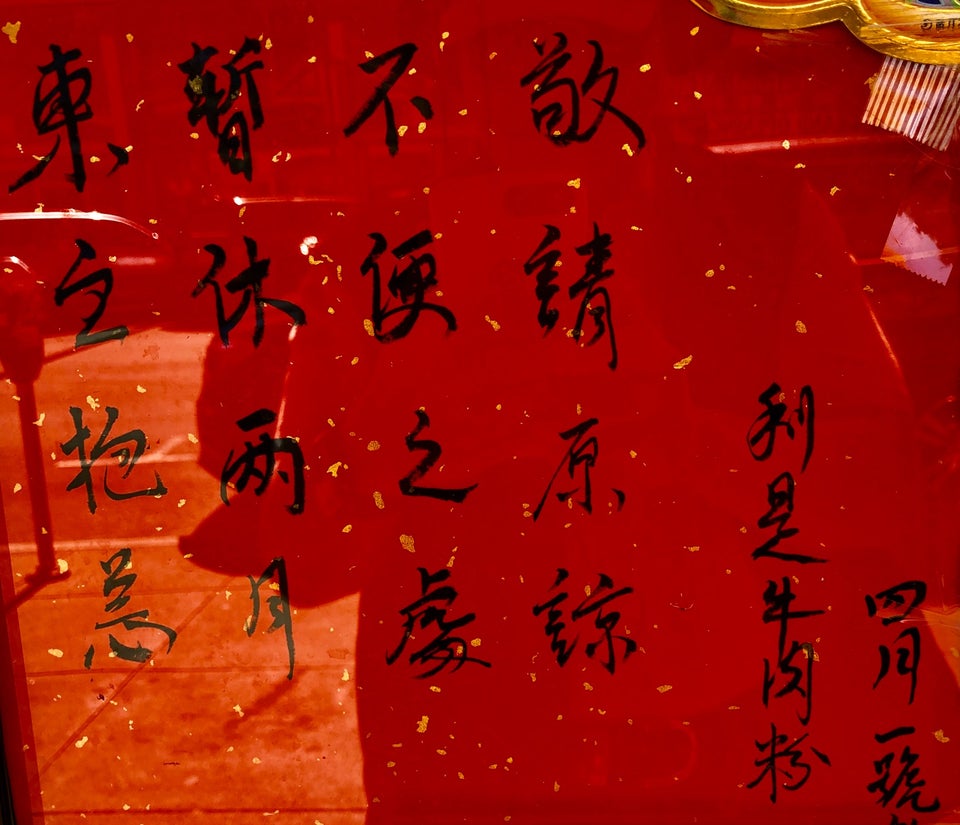 東主抱恙
暫休两月
不便之處
敬請原諒
利是牛肉粉
四月一號